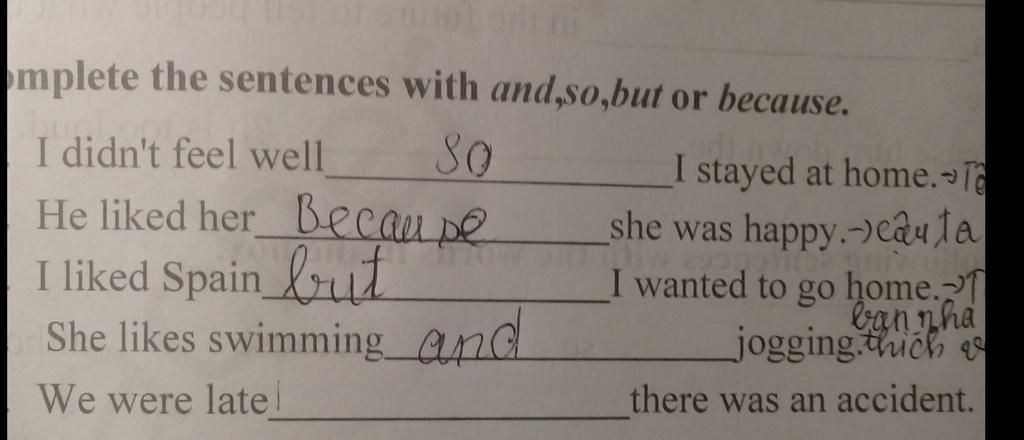 omplete the sentences with and,so,but or because.
I didn't feel well so I stayed at home.→
He liked her Because she was happy.→
I liked Spain but I wanted to go home.→
She likes swimming and jogging.thích
We were late there was an accident.